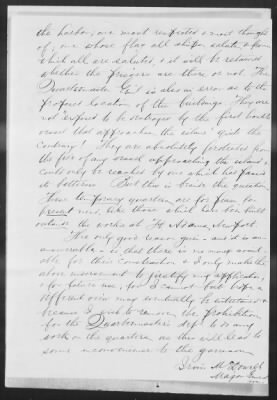 the harbor; one most respected & most thought
of; one whose flag all ships salute & from
which all are saluted, & it will be retained
whether the prisoners are there or not. The
Quartermaster Gen'l is also in error as to the
proposed location of the buildings. They are
not exposed to be outraged by the first bomb
vessel that approaches the island: quite the
contrary! They are absolutely protected from
the fire of any vessel approaching the island &
could only be reached by one which has passed
its batteries. But this is beside the question
These temporary quarters are for from for
present use, like those which have been built
outside the works at Ft Adams, Newport.
The only good reason given and it is an
answerable is that there is no money avail-
able for their construction & I only make the
above answer to justify my application,
& for future use; for I cannot but hope a
different view may eventually be entertained &
because I wish to remove the prohibition
for the Quartermaster's dept to do any
work on the quarters as this will lead to
some inconvenience to the garrison
Irvin McDowell
Major Genl